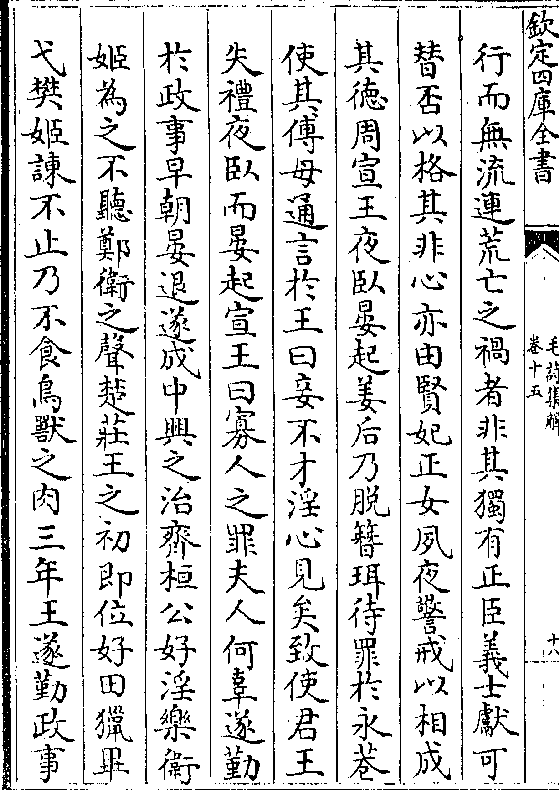 欽定四庫全書
毛詩集解
卷十五
十八
行而無流連荒亡之禍者非其獨有正臣義士獻可
替否以格其非心亦由賢妃正女夙夜警戒以相成
其徳周宣王夜臥晏起姜后乃脱簮珥待罪於永巷
使其傅母通言於王曰妾不才淫心見矣致使君王
失禮夜臥而晏起宣王曰寡人之罪夫人何辜遂勤
於政事早朝晏退遂成中興之治齊桓公好淫樂衛
姬為之不聽鄭衛之聲楚莊王之初即位好田獵畢
弋樊姬諫不止乃不食鳥獸之肉三年王遂勤政事